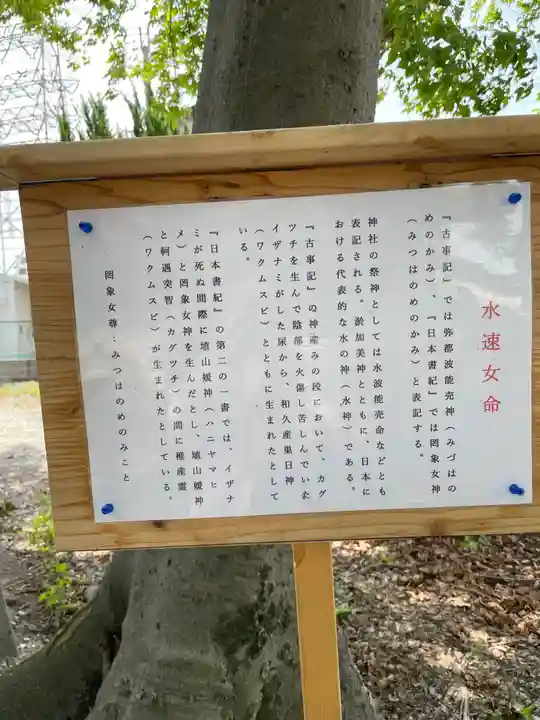 水速女命
『古事記』では弥都波能売神（みづはの
めのかみ）、『日本書紀』では罔象女神
（みつはのめのかみ）と表記する。
神社の祭神としては水波能売命などとも
表記される。淤加美神とともに、日本に
おける代表的な水の神（水神）である。
『古事記』の神産みの段において、カグ
ツチを生んで陰部を火傷し苦しんでいた
イザナミがした尿から、和久産巣日神
（ワクムスビ）とともに生まれたとして
いる。
『日本書紀』の第二の一書では、イザナ
ミが死ぬ間際に埴山媛神（ハニヤマヒ
メ）と罔象女神を生んだとし、埴山媛神
と軻遇突智（カグツチ）の間に稚産霊
（ワクムスビ）が生まれたとしている。
罔象女尊：みつはのめのみこと